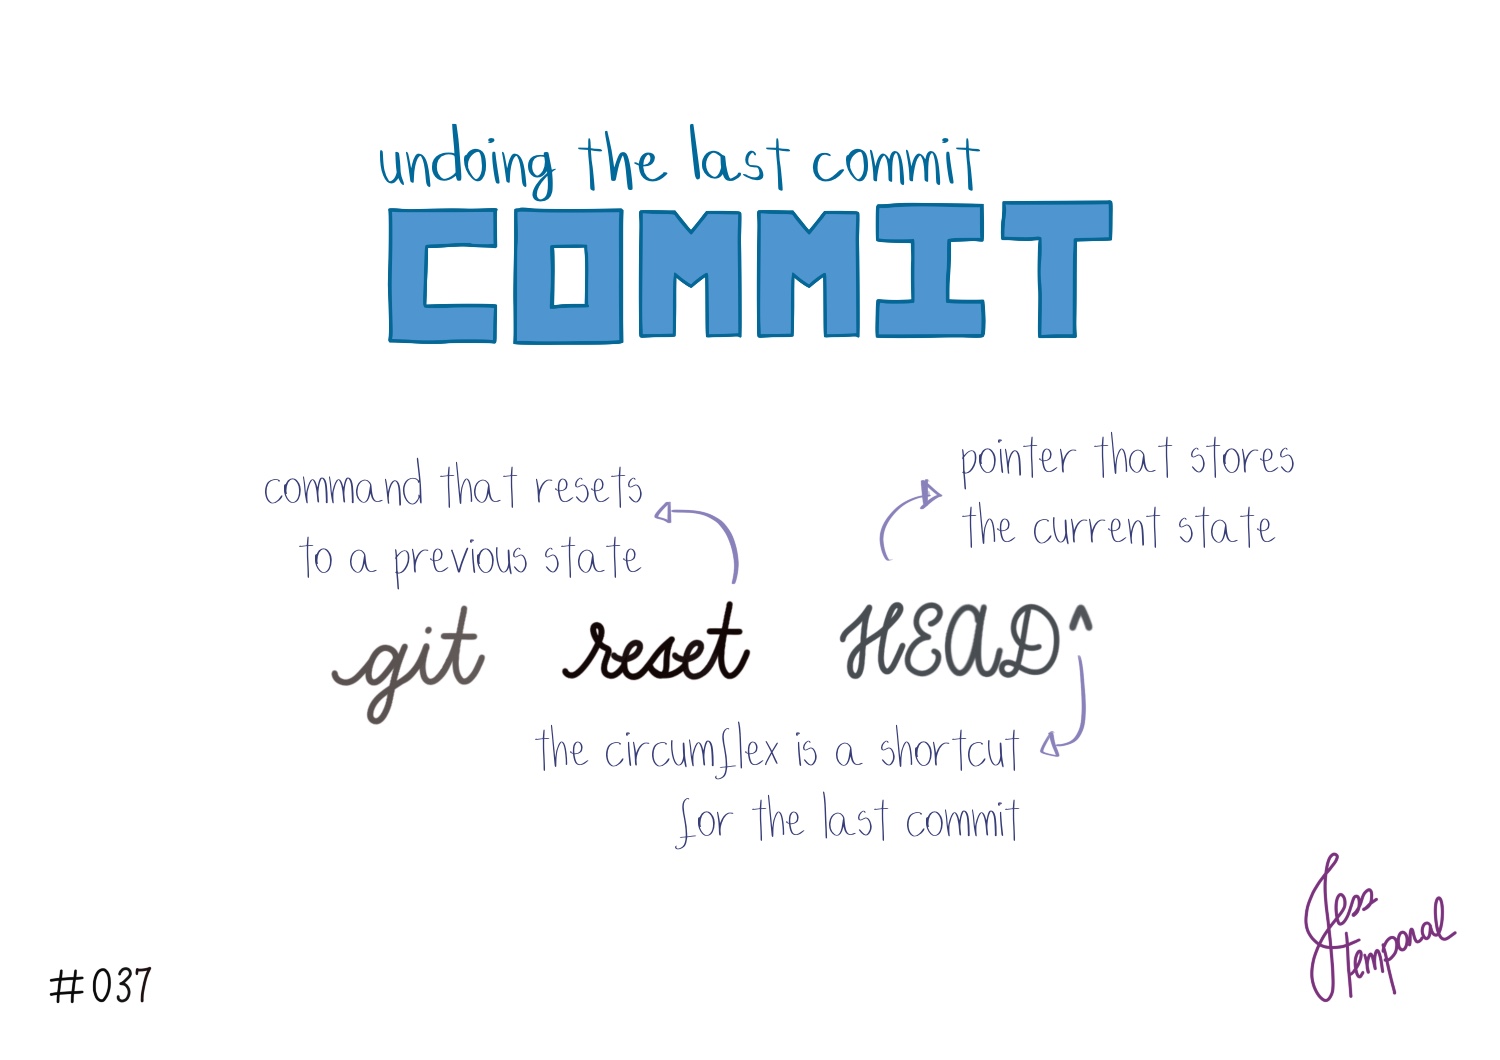 undoing the last commit
COMMIT
command that resets
to a previous state
pointer that stores
the current state
git reset HEAD^
the circumflex is a shortcut
for the last commit
#037
Jess
temporal